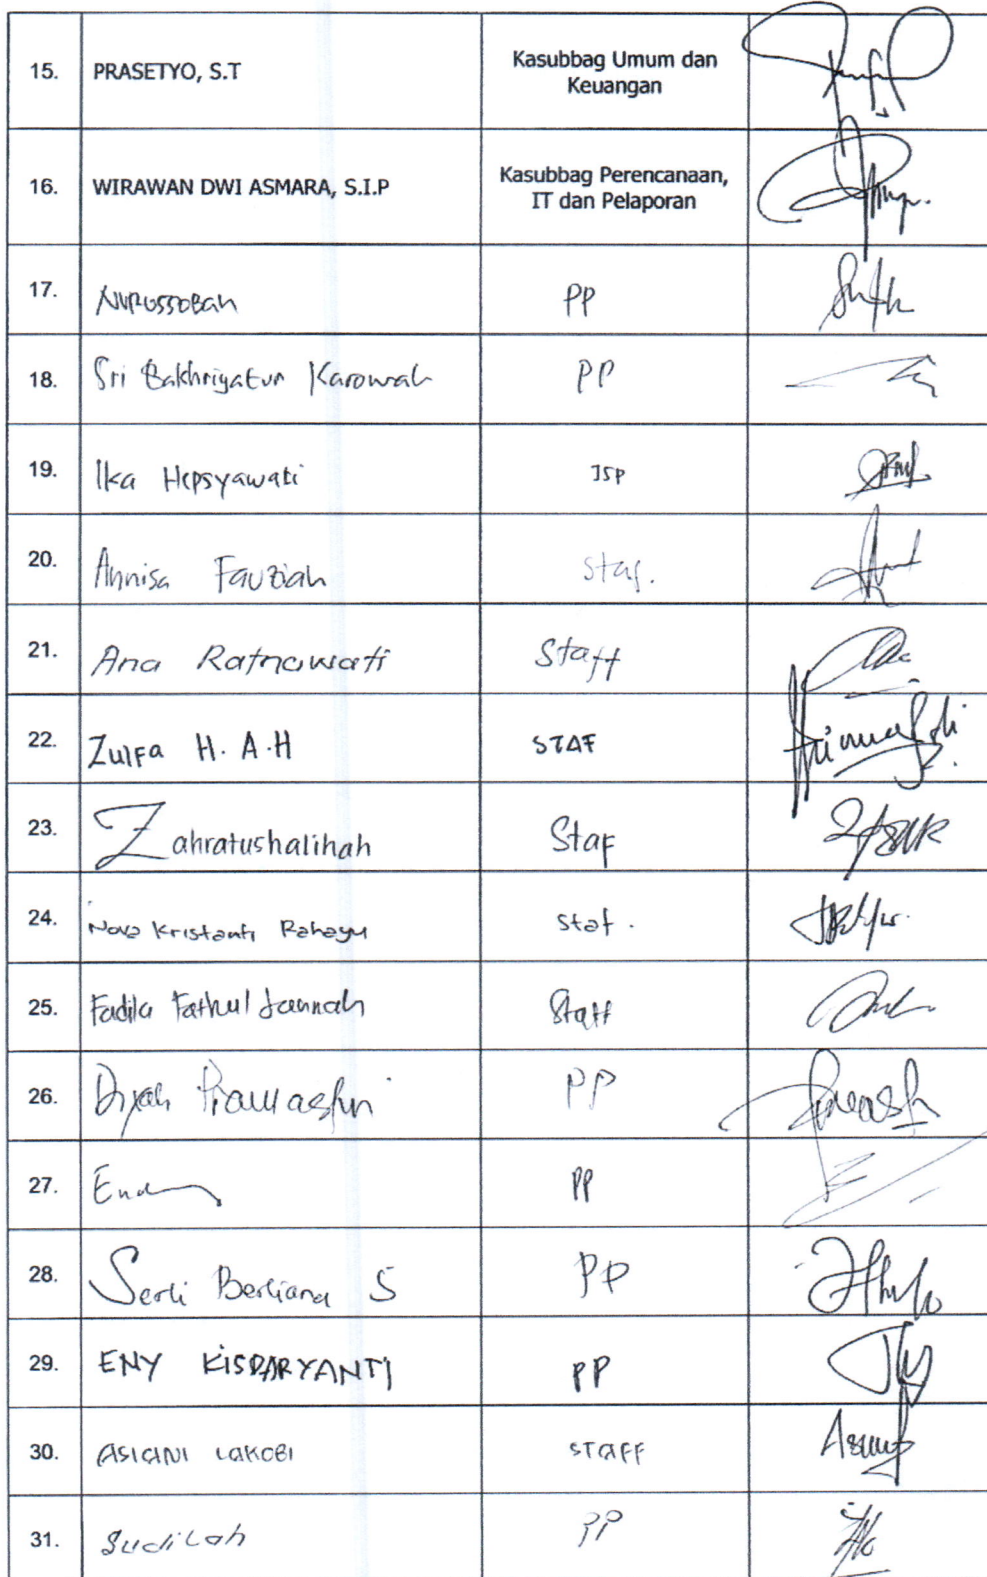 15. PRASETYO, S.T Kasubbag Umum dan Keuangan
16. WIRAWAN DWI ASMARA, S.I.P Kasubbag Perencanaan, IT dan Pelaporan
17. Nurussobah PP
18. Sri Bakhriyatun Karowah PP
19. Ika Hepsyawati JSP
20. Annisa Fauziah Staf.
21. Ana Ratnawati Staff
22. Zulfa H. A. H STAF
23. Zahratushalihah Staf
24. Nova Kristanti Rahayu Staf.
25. Fadila Fathul Jannah Staff
26. Dyah PP
27. PP
28. Serli Berliana S PP
29. ENY KISDARYANTI PP
30. ASIANI LAKOBI STAFF
31. Sudilah PP